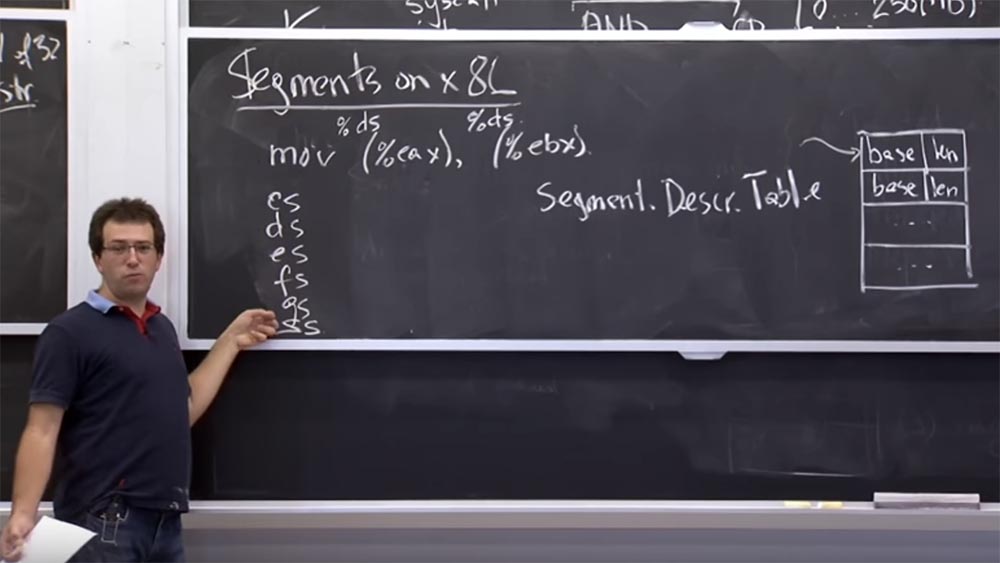 syscall
AND
0... 256(MB)
of 32
str.
Segments on x86
%ds %ds
mov (%eax), (%ebx).
cs
ds
es
fs
gs
ss
Segment. Descr. Table
base len
base len
...
...